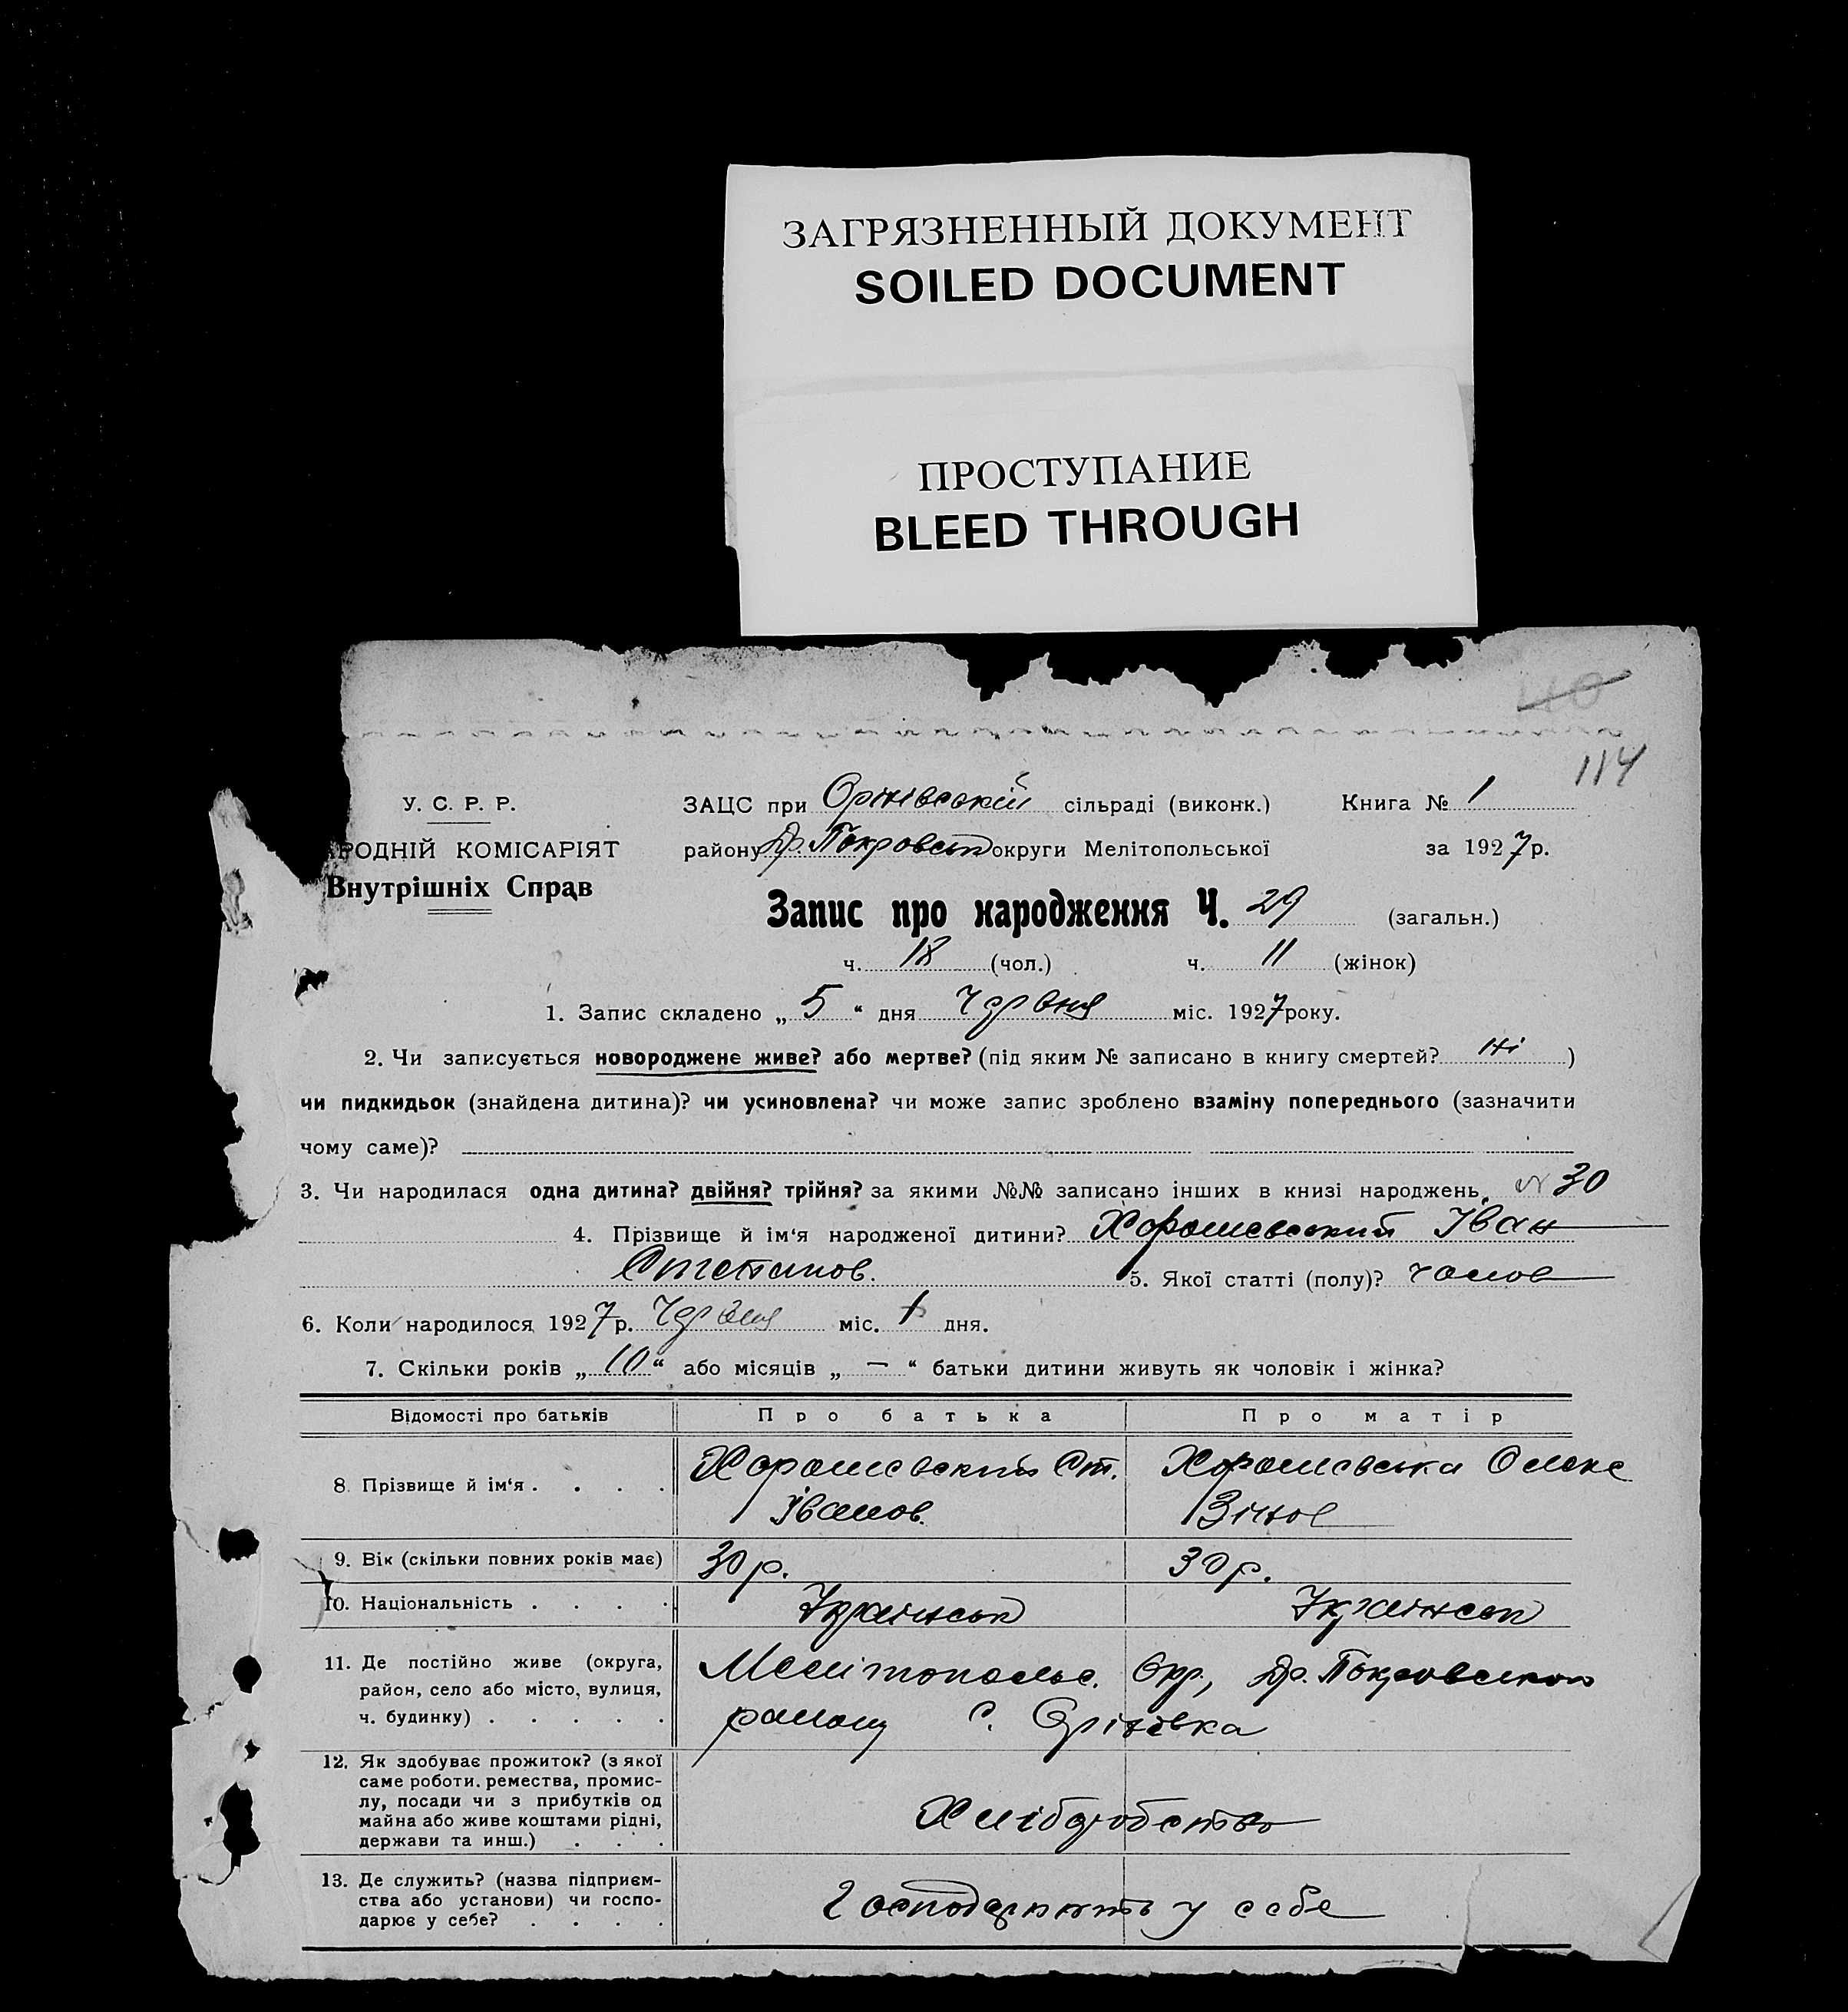 ЗАГРЯЗНЕННЫЙ ДОКУМЕНТ
SOILED DOCUMENT
ПРОСТУПАНИЕ
BLEED THROUGH
110
114
У. С. Р. Р.
РОДНІЙ КОМІСАРІЯТ
Внутрішніх Справ
ЗАЦС при Орінівській сільраді (виконк.) Книга № 1
району Др. Покровськ округи Мелітопольської за 1927 р.
Запис про народження Ч. 29 (загальн.)
ч. 18 (чол.) ч. 11 (жінок)
1. Запис складено „ 5 “ дня Червня міс. 1927 року.
2. Чи записується новороджене живе? або мертве? (під яким № записано в книгу смертей? ні )
чи пидкидьок (знайдена дитина)? чи усиновлена? чи може запис зроблено взаміну попереднього (зазначити
чому саме)?
3. Чи народилася одна дитина? двійня? трійня? за якими №№ записано інших в книзі народжень. № 30
4. Прізвище й ім'я народженої дитини? Хорошевський Іван
Степанов. 5. Якої статті (полу)? чолов
6. Коли народилося 1927 р. Червня міс. 1 дня.
7. Скільки років „ 10 “ або місяців „ — “ батьки дитини живуть як чоловік і жінка?
Відомості про батьків Про батька Про матір
8. Прізвище й ім'я . . . . Хорошевский Ст. Хорошевська Олекс
Іванов. Зінов
9. Вік (скільки повних років має) 30 р. 30 р.
10. Національність . . . . Українськ Українськ
11. Де постійно живе (округа, Мелітопольс. Окр., Др. Покровського
район, село або місто, вулиця, району С. Орінівка
ч. будинку) . . . . .
12. Як здобуває прожиток? (з якої
саме роботи, ремества, промис-
лу, посади чи з прибутків од
майна або живе коштами рідні, Хліборобство
держави та инш.) . . . .
13. Де служить? (назва підприєм-
ства або установи) чи госпо- Господарюють у себе
дарює у себе? . . . .